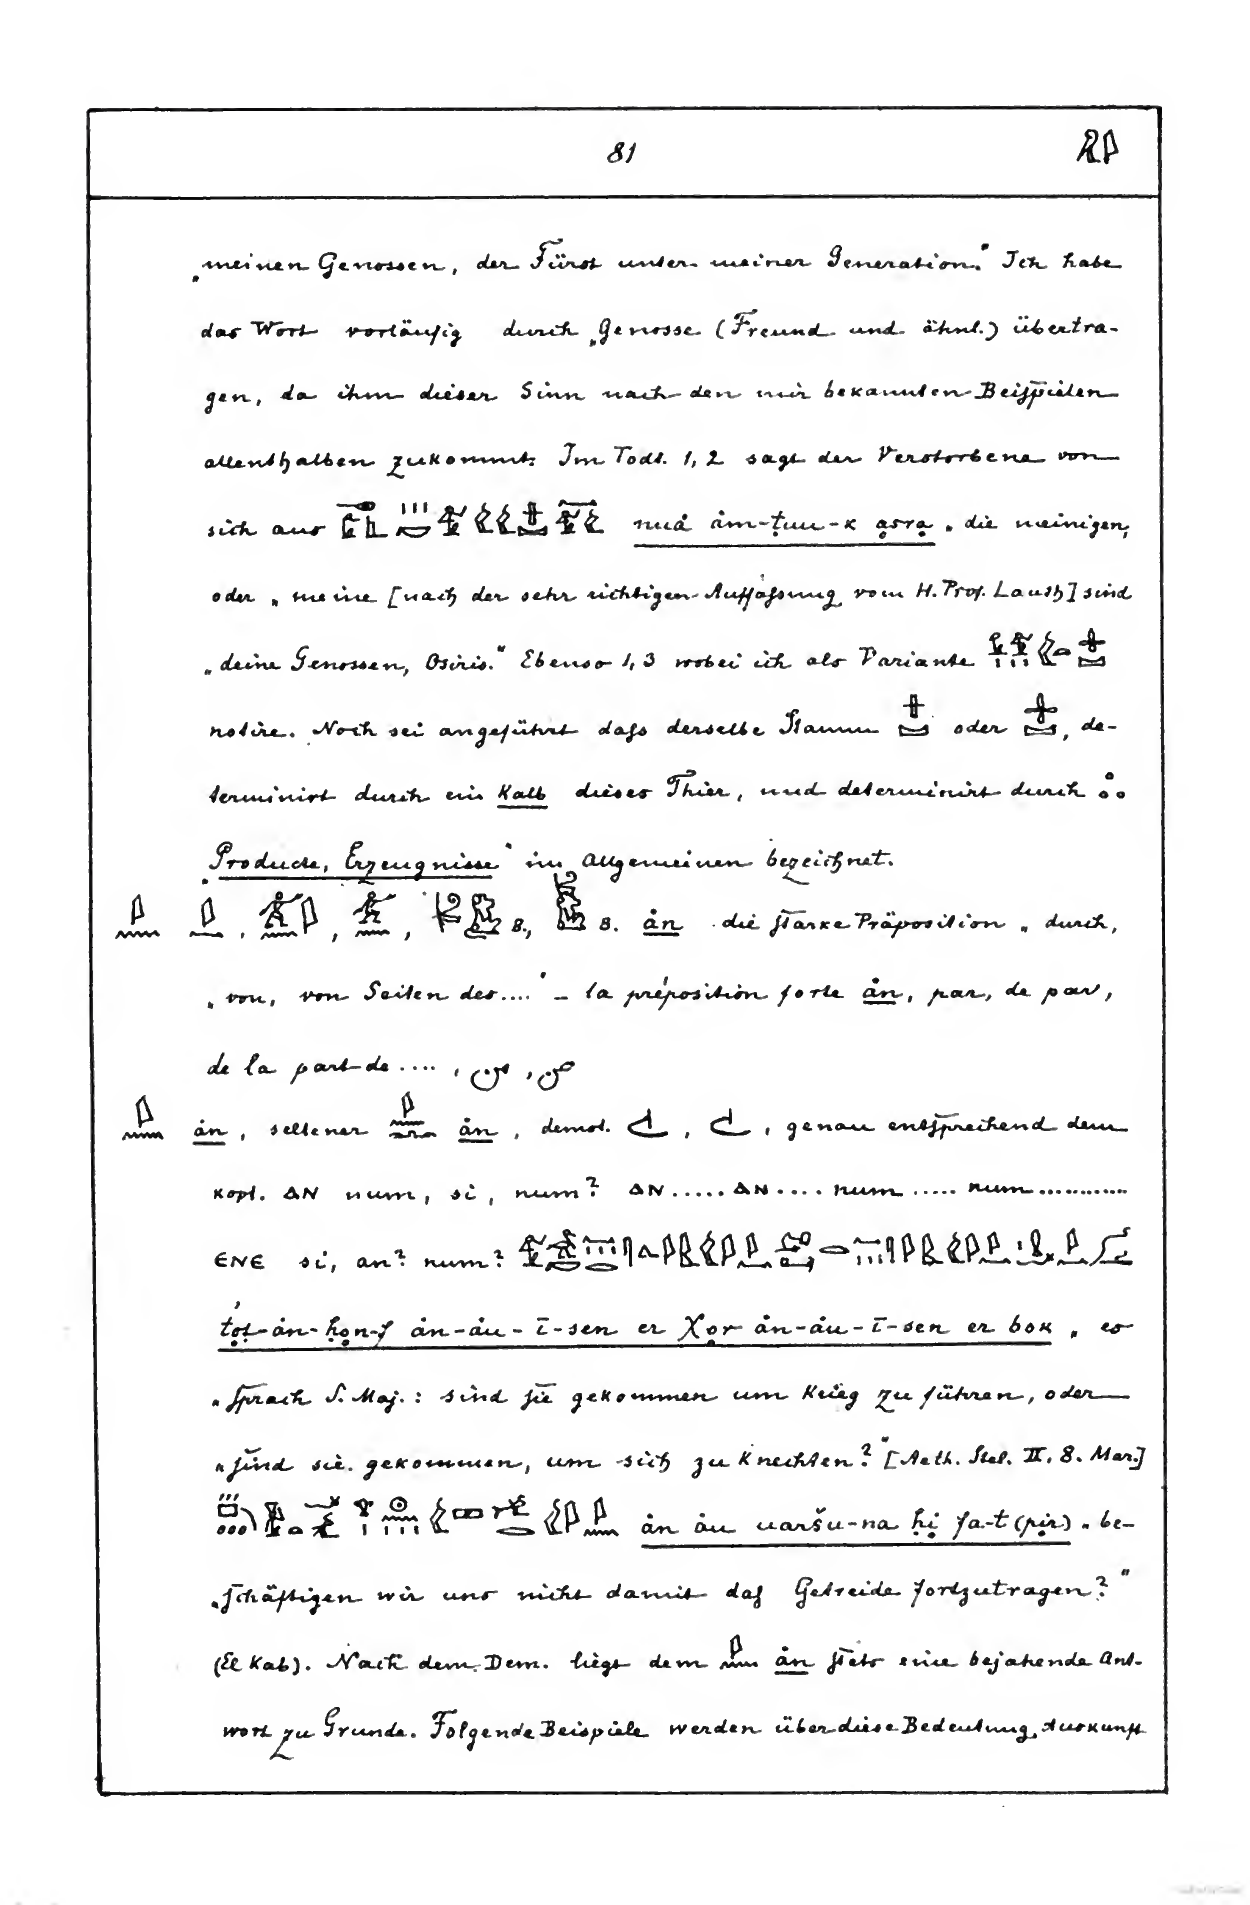 81
„meinen Genossen, der Fürst unter meiner Generation.“ Ich habe
das Wort vorläufig durch „Genosse (Freund und ähnl.) übertra-
gen, da ihm dieser Sinn nach den mir bekannten Beispielen
allenthalben zukommt. Im Todt. 1, 2 sagt der Verstorbene von
sich aus nuȧ ȧm-ṭuu-k ạsrạ „die meinigen,
oder „meine [nach der sehr richtigen Auffaſsung vom H. Prof. Lauth] sind
„deine Genossen, Osiris.“ Ebenso 1, 3 wobei ich als Variante
notire. Noch sei angeführt daſs derselbe Stamm oder , de-
terminirt durch ein Kalb dieses Thier, und determinirt durch
„Producte, Erzeugnisse“ im Allgemeinen bezeichnet.
, , , , B., B. ȧn die starke Präposition „durch,
„von, von Seiten des....“ – la préposition forte ȧn, par, de par,
de la part de ...., من, عن
ȧn, seltener ȧn, demot. , , genau entsprechend dem
kopt. ⲁⲛ num, si, num? ⲁⲛ.....ⲁⲛ.... num..... num...........
ⲉⲛⲉ si, an? num?
ṭoṭ-ȧn-ḥon-f ȧn-ȧu-ī-sen er χor ȧn-ȧu-ī-sen er bok „es
„sprach S. Maj.: sind sie gekommen um Krieg zu führen, oder
„sind sie gekommen, um sich zu knechten?“ [Aeth. Stel. II, 8. Mar.]
ȧn ȧu uaršu-na ḥi fa-t (pir) „be-
„schäftigen wir uns nicht damit das Getreide fortzutragen?“
(El Kab). Nach dem Dem. liegt dem ȧn stets eine bejahende Ant-
wort zu Grunde. Folgende Beispiele werden über diese Bedeutung Auskunft